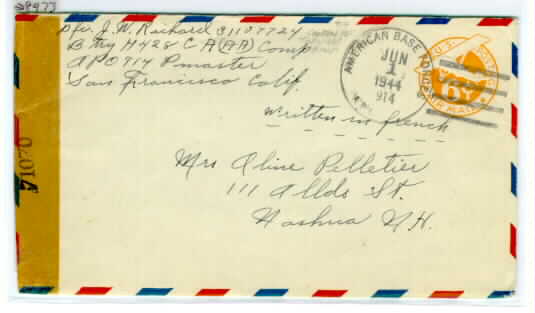 28933
Pfc. J. W. Richard 31107724
Btry H 428 C A (AA) Comp
APO 914 Pmaster
San Francisco Calif.
AMERICAN BASE ADVANCE
JUN
1
1944
914
U.S. POSTAGE
6¢
AIR MAIL
written in french
71070
Mrs Aline Pelletier
111 Allds St.
Nashua N.H.